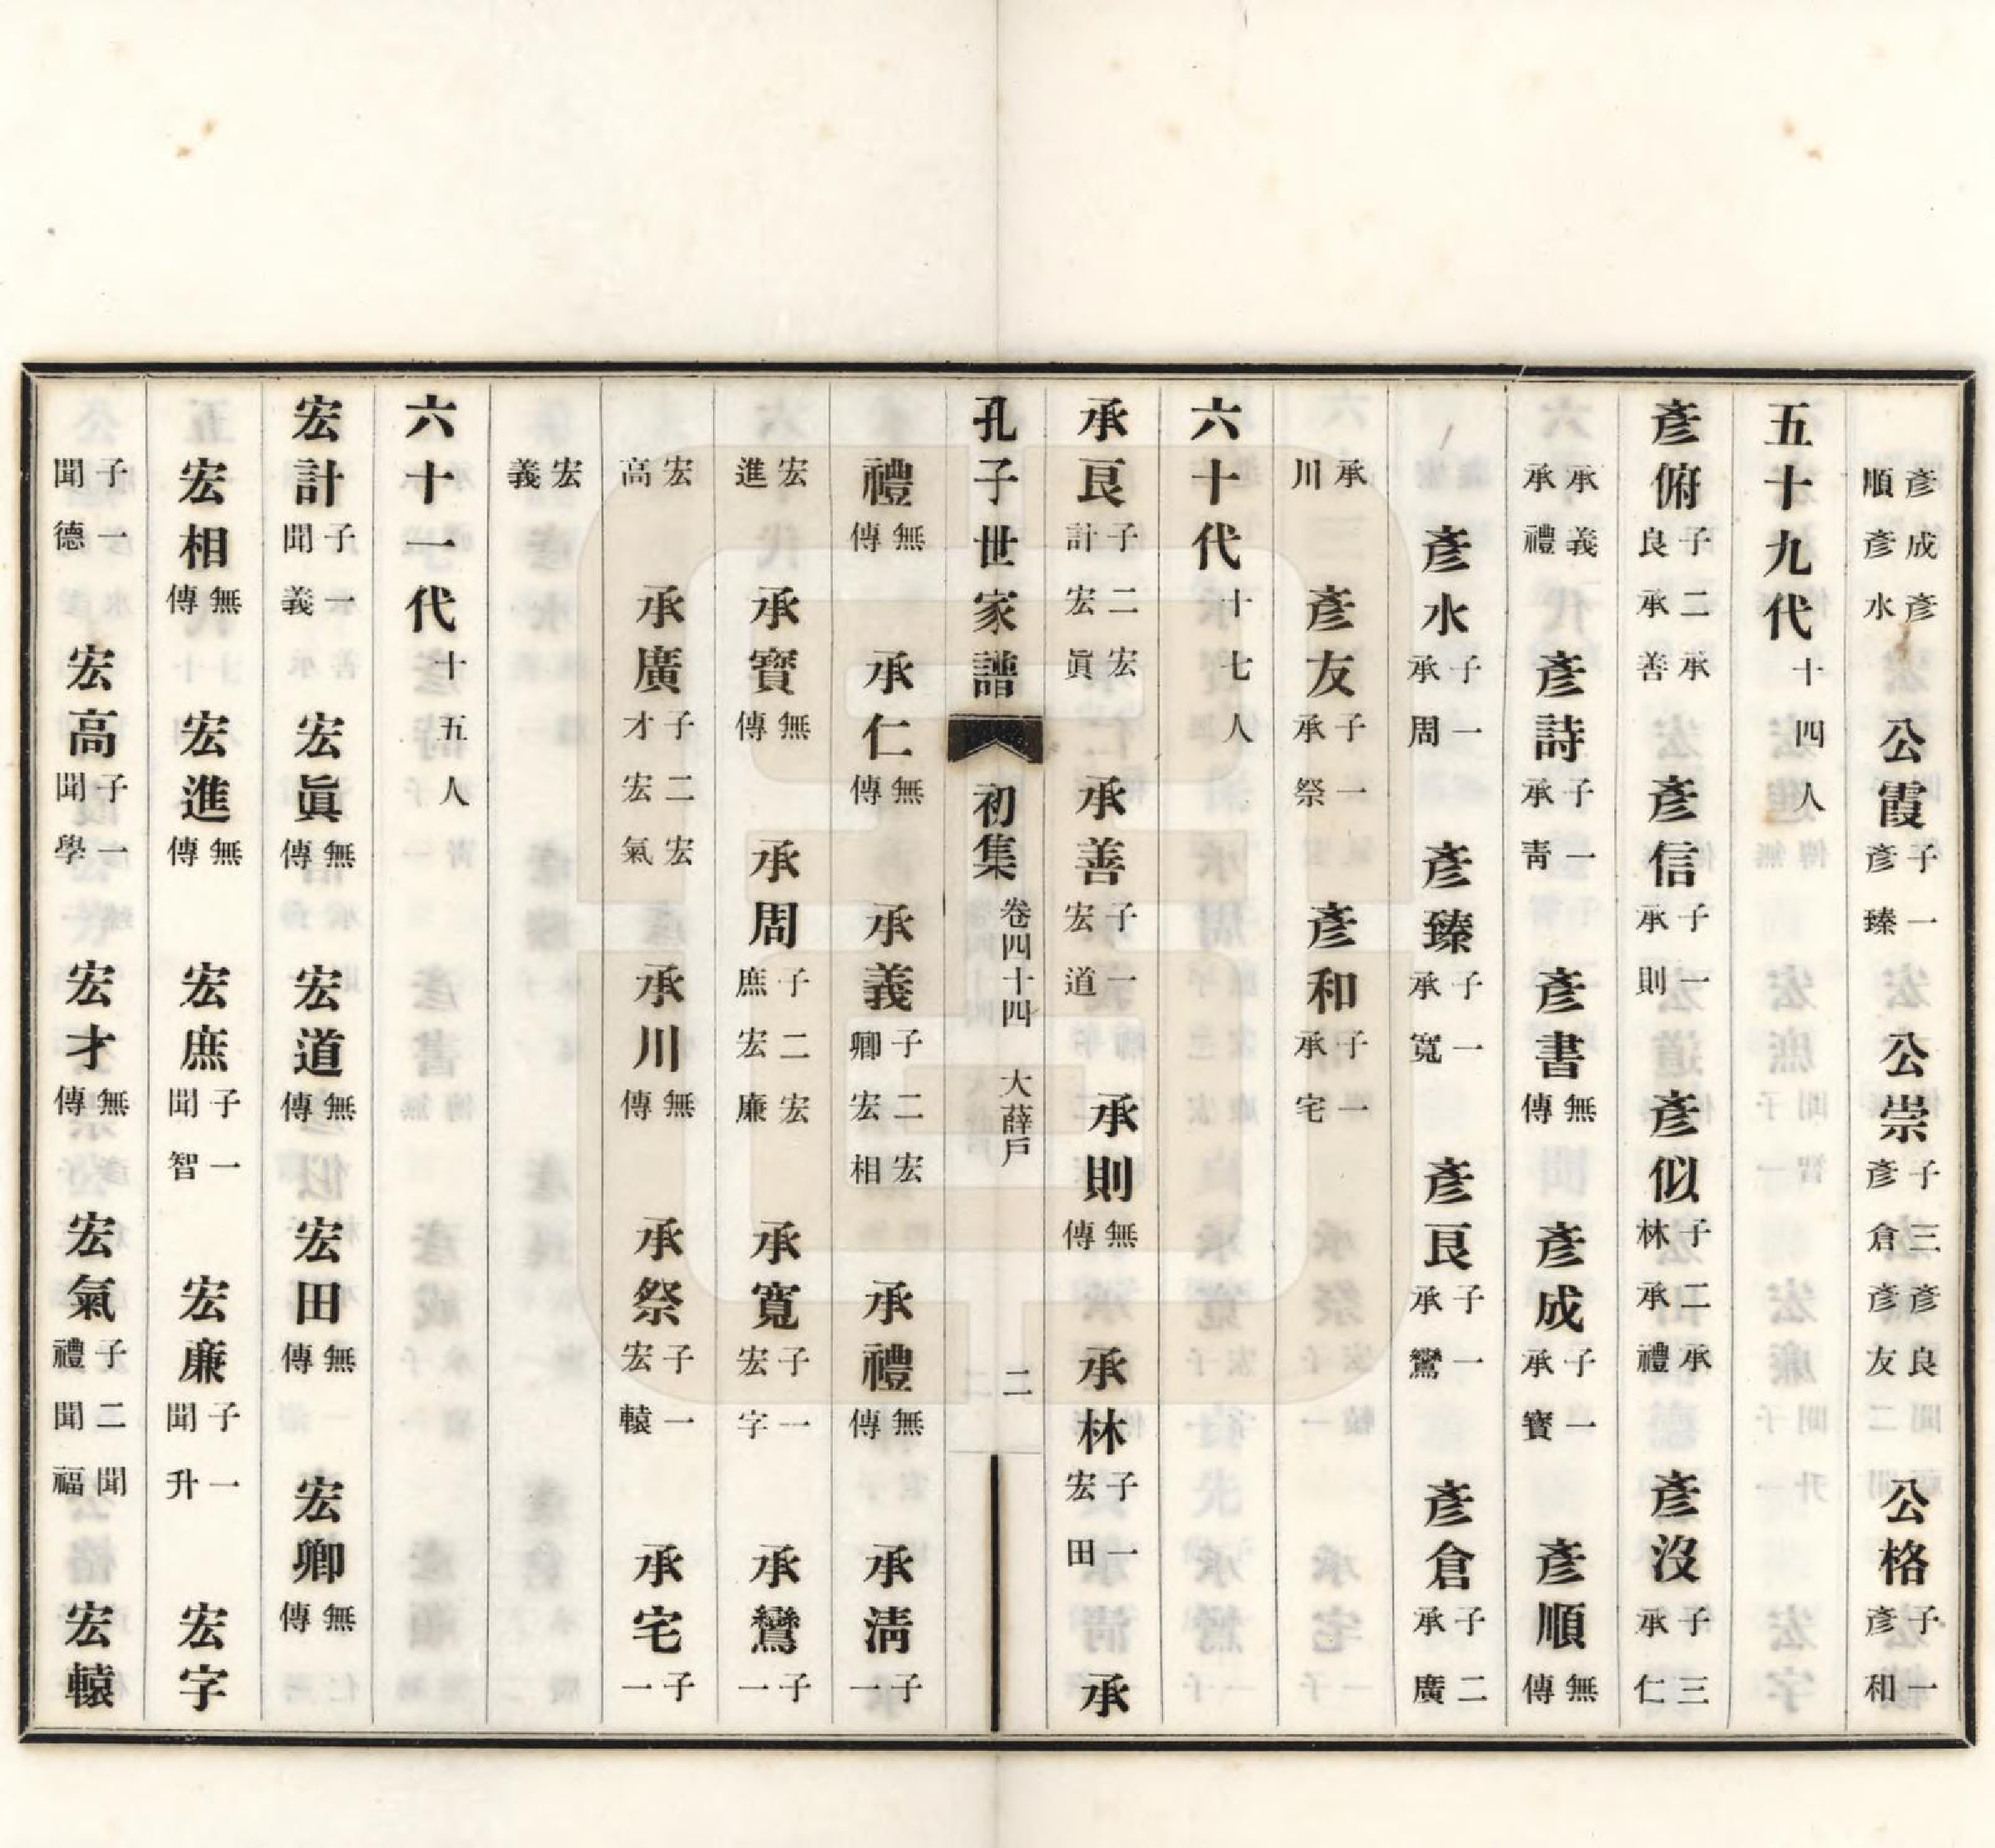 彥成彥順彥水 公霞 子一彥臻 公崇 子三彥良彥倉彥友 公格 子一彥和
五十九代 十四人
彥俯 子二承良承善 彥信 子一承則 彥似 子二承林承禮 彥沒 子三承仁
承義承禮 彥詩 子一承靑 彥書 無傳 彥成 子一承寶 彥順 無傳
彥水 子一承周 彥臻 子一承寬 彥良 子一承鸞 彥倉 子二承廣
承川 彥友 子一承祭 彥和 子一承宅
六十代 十七人
承良 子二宏計宏眞 承善 子一宏道 承則 無傳 承林 子一宏田 承
孔子世家譜 初集 卷四十四 大薛戶 二
禮 無傳 承仁 無傳 承義 子二宏卿宏相 承禮 無傳 承淸 子一
宏進 承寶 無傳 承周 子二宏庶宏廉 承寬 子一宏字 承鸞 子一
宏高 承廣 子二宏才宏氣 承川 無傳 承祭 子一宏轅 承宅 子一
宏義
六十一代 十五人
宏計 子一聞義 宏眞 無傳 宏道 無傳 宏田 無傳 宏卿 無傳
宏相 無傳 宏進 無傳 宏庶 子一聞智 宏廉 子一聞升 宏字
子一聞德 宏高 子一聞學 宏才 無傳 宏氣 子二聞禮聞福 宏轅